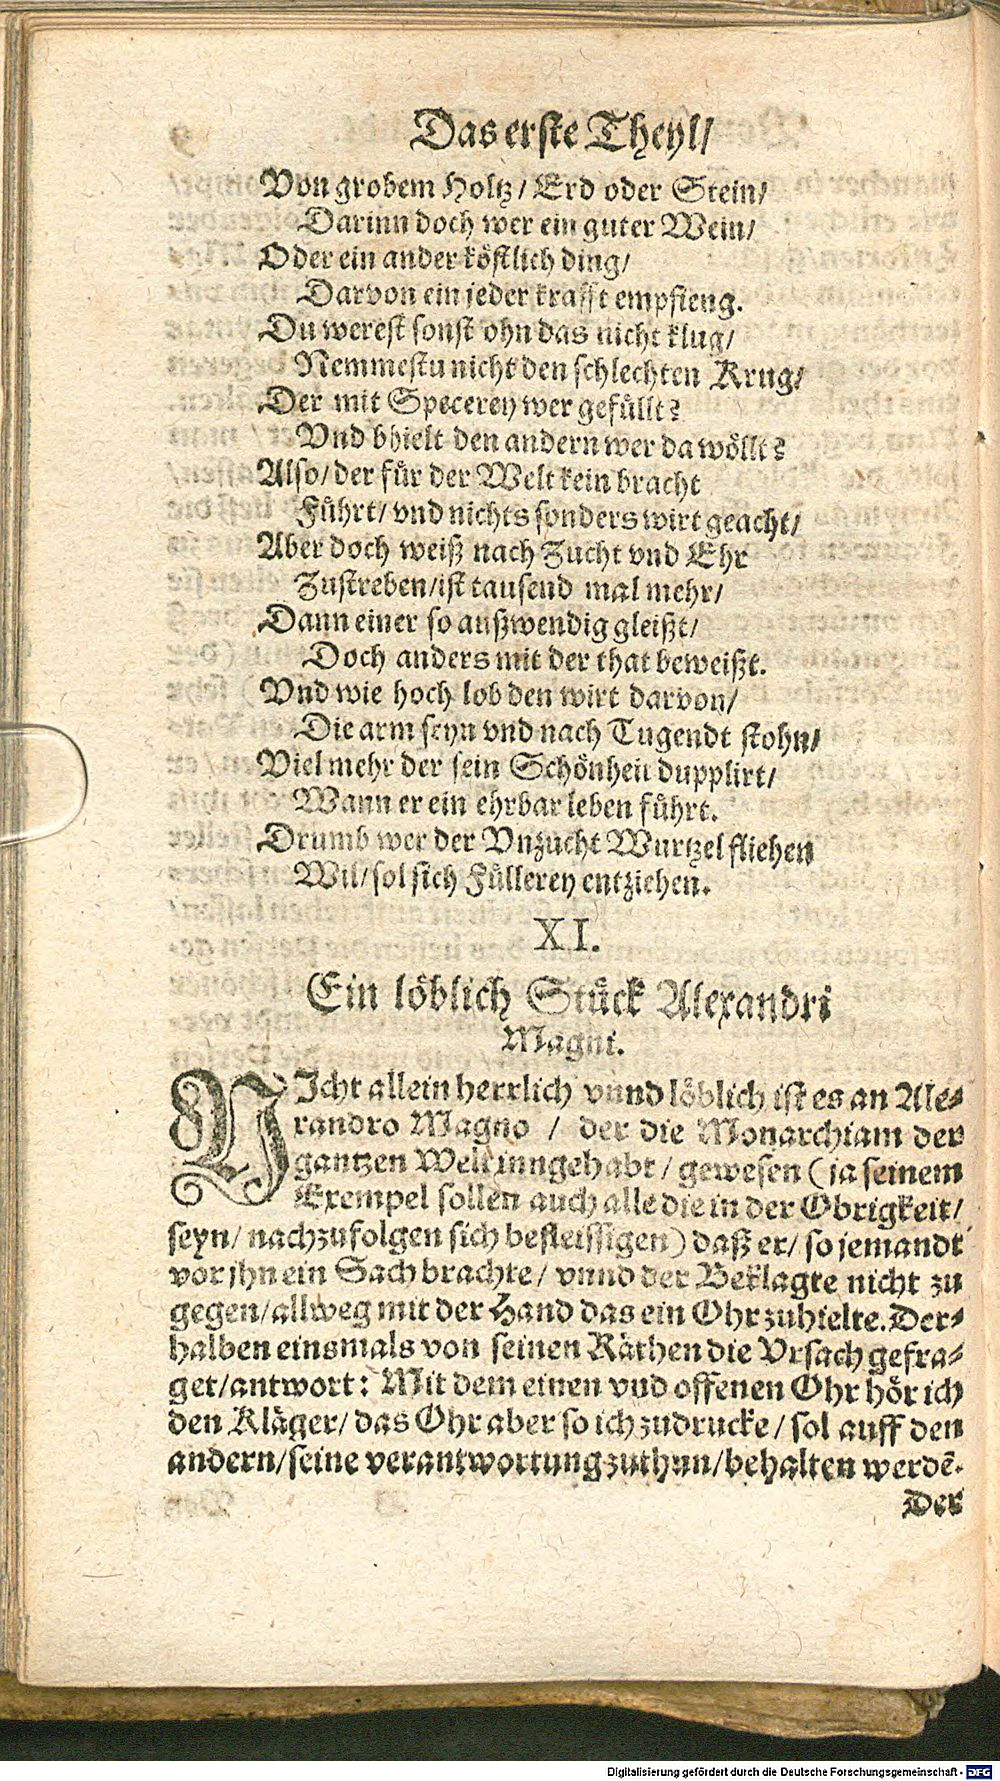 Das erste Theyl/
Von grobem Holtz/ Erd oder Stein/
Darinn doch wer ein guter Wein/
Oder ein ander köstlich ding/
Darvon ein jeder krafft empfieng.
Du werest sonst ohn das nicht klug/
Nemmestu nicht den schlechten Krug/
Der mit Specerey wer gefüllt?
Vnd bhielt den andern wer da wöllt?
Also/ der für der Welt kein bracht
Führt/ vnd nichts sonders wirt geacht/
Aber doch weiß nach Zucht vnd Ehr
Zustreben/ist tausend mal mehr/
Dann einer so außwendig gleißt/
Doch anders mit der that beweißt.
Vnd wie hoch lob den wirt darvon/
Die arm seyn vnd nach Tugendt stohn/
Viel mehr der sein Schönheit dupplirt/
Wann er ein ehrbar leben führt.
Drumb wer der Vnzucht Wurtzel fliehen
Wil/ sol sich Füllerey entziehen.
XI.
Ein löblich Stück Alexandri
Magni.
NIcht allein herrlich vnnd löblich ist es an Ale-
xandro Magno / der die Monarchiam der
gantzen Welt inngehabt / gewesen (ja seinem
Exempel sollen auch alle die in der Obrigkeit/
seyn/ nachzufolgen sich befleissigen) daß er/ so jemandt
vor jhn ein Sach brachte/ vnnd der Beklagte nicht zu
gegen/allweg mit der Hand das ein Ohr zuhielte. Der-
halben einsmals von seinen Räthen die Vrsach gefra-
get/antwort: Mit dem einen vnd offenen Ohr hör ich
den Kläger/ das Ohr aber so ich zudrucke/ sol auff den
andern/seine verantwortung zuthun/behalten werdē.
Der
Digitalisierung gefördert durch die Deutsche Forschungsgemeinschaft - DFG